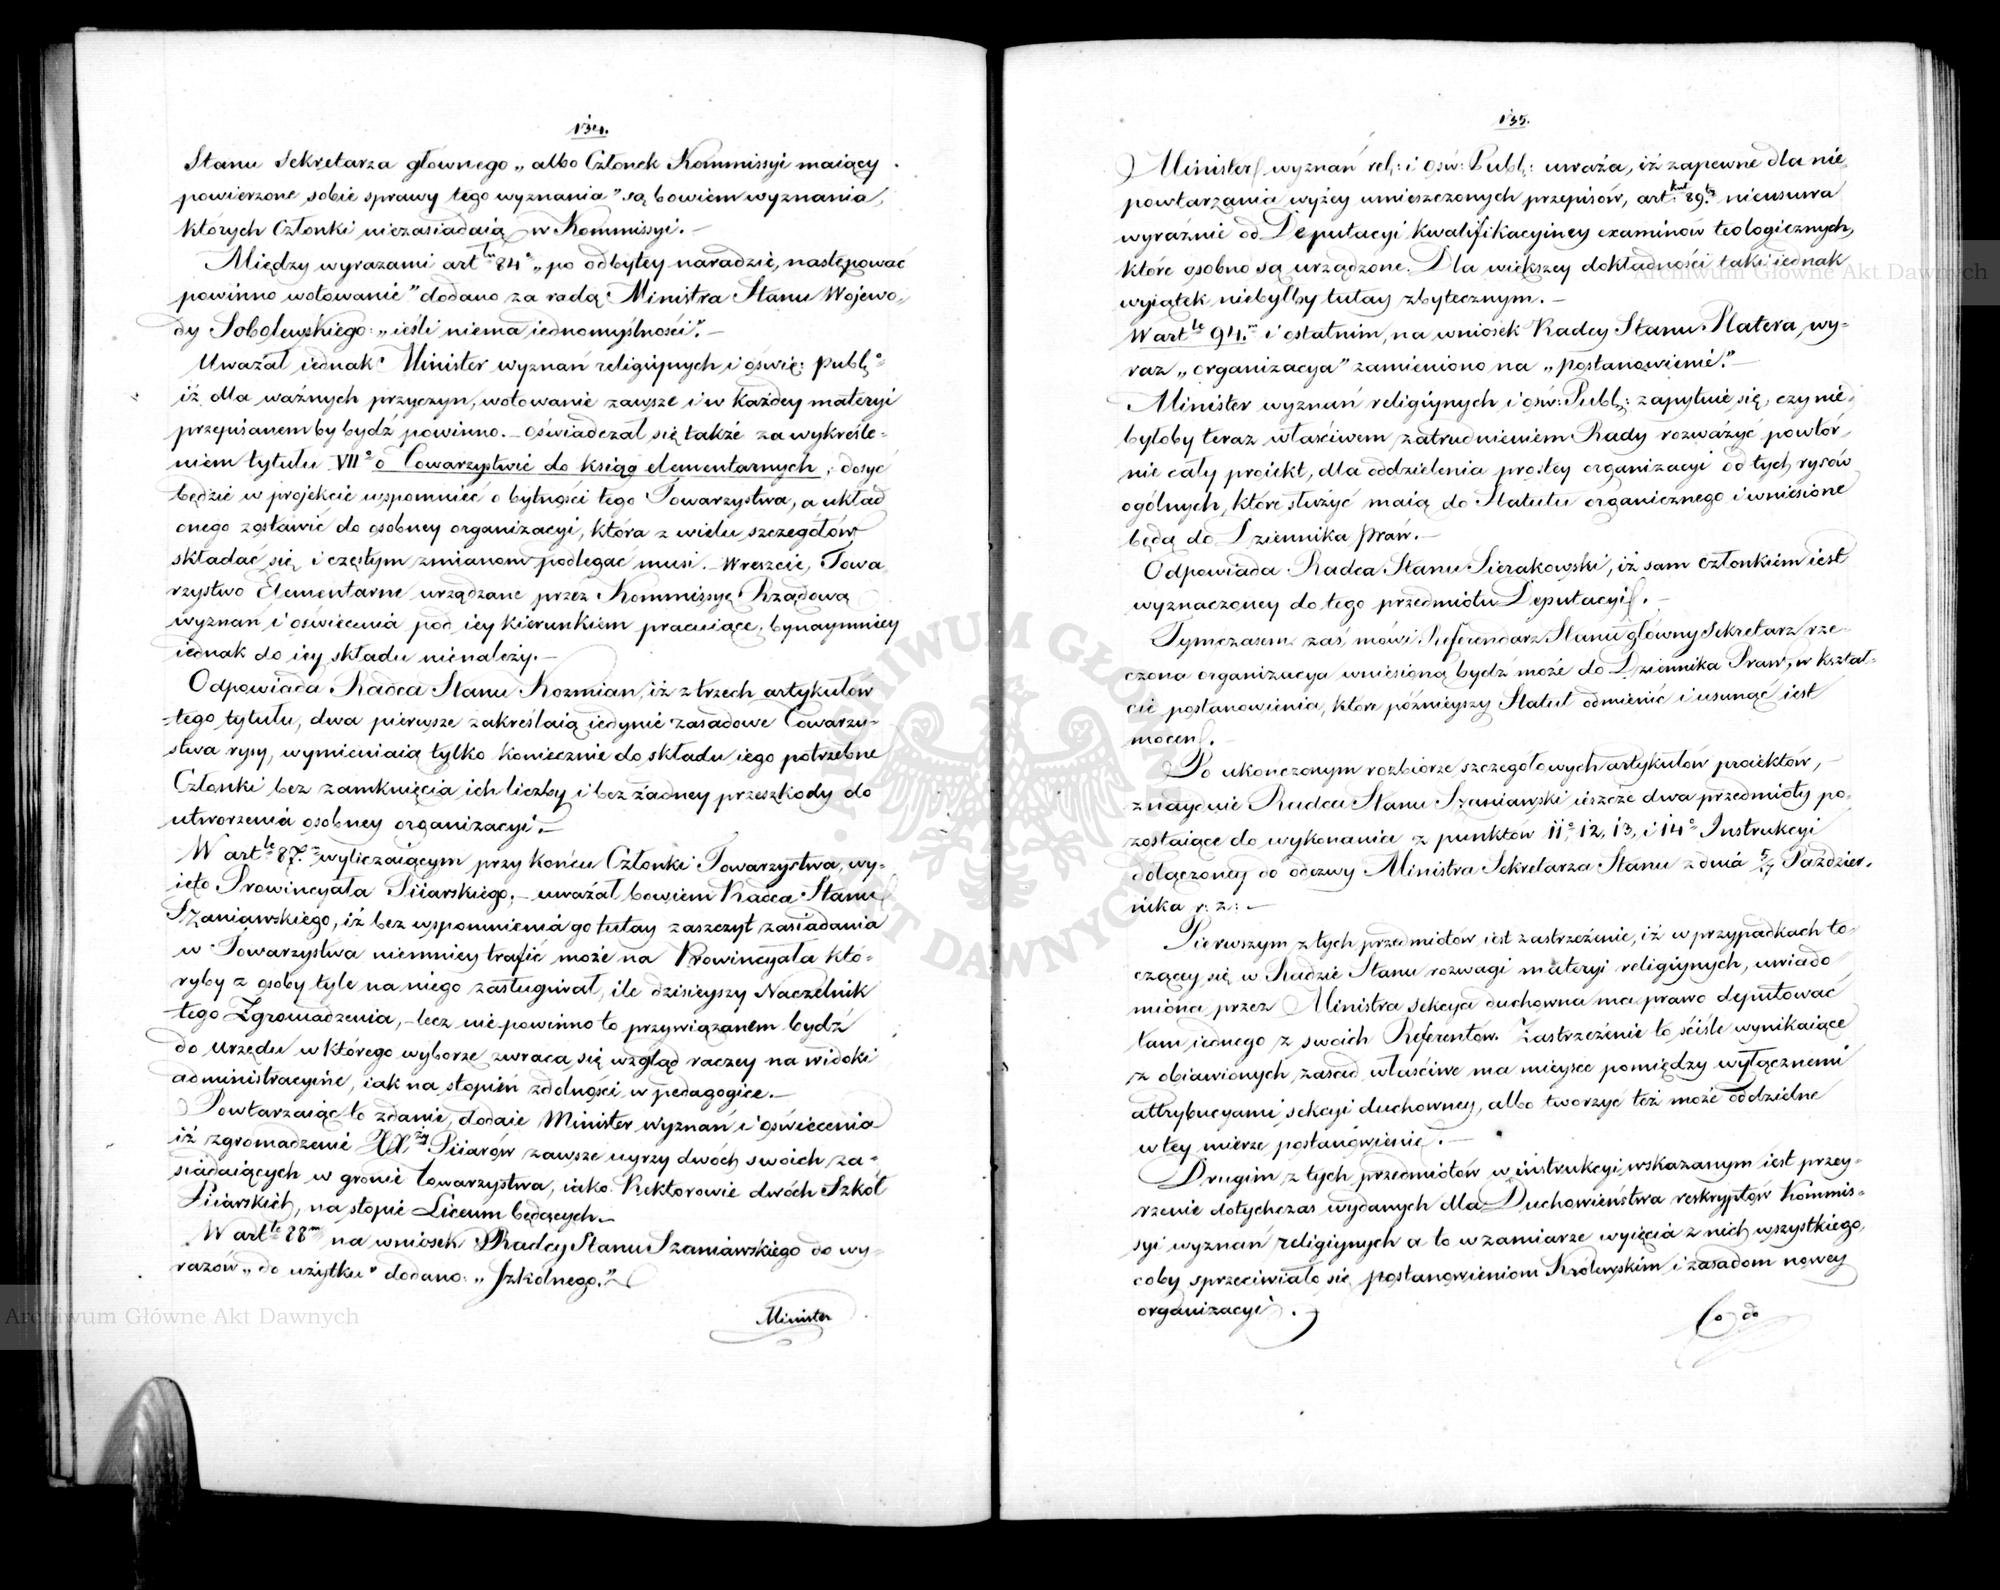 134.
Stanu Sekretarza głownego „albo Członek Kommissyi maiący
powierzone sobie sprawy tego wyznania” są bowiem wyznania,
których Członki niezasiadaią w Kommissyi. —
Między wyrazami art<sup>łu</sup> 84° „po odbytey naradzie, następować
powinno wotowanie” dodano za radą Ministra Stanu Wojewo-
dy Sobolewskiego: „ieśli niema iednomyślności”. —
Uważał iednak Minister wyznań religiynych i oświe: publ:
iż dla ważnych przyczyn, wotowanie zawsze i w każdey materyi
przepisanem by bydź powinno. — Oświadczał się także za wykreśle-
niem tytułu VII° o Towarzystwie do ksiąg elementarnych; dosyć
będzie w projekcie wspomnieć o bytności tego Towarzystwa, a układ
onego zostawić do osobney organizacyi, która z wielu szczegółów
składać się i częstym zmianom podlegać musi. — Wreszcie, Towa
rzystwo Elementarne urządzane przez Kommissyę Rządową
wyznań i oświecenia pod iey kierunkiem pracuiące, bynaymniey
iednak do iey składu nienależy. —
Odpowiada Radca Stanu Kozmian, iż z trzech artykułów
tego tytułu, dwa pierwsze zakreślaią iedynie zasadowe Towarzy-
stwa rysy, wymieniaią tylko koniecznie do składu iego potrzebne
Członki bez zamknięcia ich liczby i bez żadney przeszkody do
utworzenia osobney organizacyi. —
W art<sup>le</sup> 87.<sup>m</sup> wyliczaiącym przy końcu Członki Towarzystwa, wy-
ięto Prowincyała Piiarskiego, — uważał bowiem Radca Stanu
Szaniawskiego, iż bez wspomnienia go tutay zaszczyt zasiadania
w Towarzystwa niemniey trafić może na Prowincyała któ-
ryby z osoby tyle na niego zasługiwał, ile dzisieyszy Naczelnik
tego Zgromadzenia, — lecz nie powinno to przywiązanem bydź
do Urzędu w którego wyborze zwraca się wzgląd raczey na widoki
administracyine, iak na stopień zdolności w pedagogice. —
Powtarzaiąc to zdanie, dodaie Minister wyznań i oświecenia
iż zgromadzenie XX.<sup>ży</sup> Piiarów zawsze uyrzy dwóch swoich za-
siadaiących w gronie Towarzystwa, iako Rektorowie dwóch Szkół
Piiarskich, na stopie Liceum będących. —
W art<sup>le</sup> 88<sup>m</sup> na wniosek Radcy Stanu Szaniawskiego do wy-
razów „do użytku” dodano: „Szkolnego.”
Minister
135.
Minister wyznań rel: i ośw: Publ: uważa, iż zapewne dla nie-
powtarzania wyżey umieszczonych przepisów, art<sup>kuł</sup> 89.<sup>ty</sup> nieusuwa
wyraźnie od Deputacyi kwalifikacyiney examinów teologicznych,
które osobno są urządzone. Dla większey dokładności taki iednak
wyiątek niebyłby tutay zbytecznym. —
W art<sup>le</sup> 94.<sup>m</sup> i ostatnim, na wniosek Radcy Stanu Platera, wy-
raz „organizacya” zamieniono na „postanowienie.” —
Minister wyznań religiynych i ośw: Publ: zapytuie się, czy nie-
byłoby teraz właściwem zatrudnieniem Rady rozważyć powtór-
nie cały proiekt, dla oddzielenia prostey organizacyi od tych rysów
ogólnych, które służyć maią do Statutu organicznego i wniesione
będą do Dziennika Praw. —
Odpowiada Radca Stanu Sierakowski, iż sam członkiem iest
wyznaczoney do tego przedmiotu Deputacyi. —
Tymczasem zaś, mówi Referendarz Stanu główny Sekretarz rze-
czona organizacya wniesioną bydź może do Dziennika Praw, w kształ-
cie postanowienia, które późnieyszy Statut odmienić i usunąć iest
mocen. —
Po ukończonym rozbiorze szczegółowych artykułów proiektów,
znayduie Radca Stanu Szaniawski ieszcze dwa przedmioty po-
zostaiące do wykonania z punktów 11° 12, 13, i 14° Instrukcyi
dołączoney do odezwy Ministra Sekretarza Stanu z dnia 5/17 Paździer-
nika r: z: —
Pierwszym z tych przedmiotów iest zastrzeżenie, iż w przypadkach to-
czącey się w Radzie Stanu rozwagi materyi religiynych, uwiado
miona przez Ministra sekcya duchowna ma prawo deputować
tam iednego z swoich Referentów. Zastrzeżenie to ściśle wynikaiące
z obiawionych zasad właściwe ma mieysce pomiędzy wyłącznemi
attrybucyami sekcyi duchowney, albo tworzyć też może oddzielne
w tey mierze postanowienie. —
Drugim z tych przedmiotów w instrukcyi wskazanym iest przey-
rzenie dotychczas wydanych dla Duchowieństwa reskryptów Kommis-
syi wyznań religiynych a to w zamiarze wyięcia z nich wszystkiego,
coby sprzeciwiało się postanowieniom Królewskim i zasadom nowey
organizacyi.
Co do
Archiwum Główne Akt Dawnych
Archiwum Główne Akt Dawnych
ARCHIWUM GŁÓWNE AKT DAWNYCH